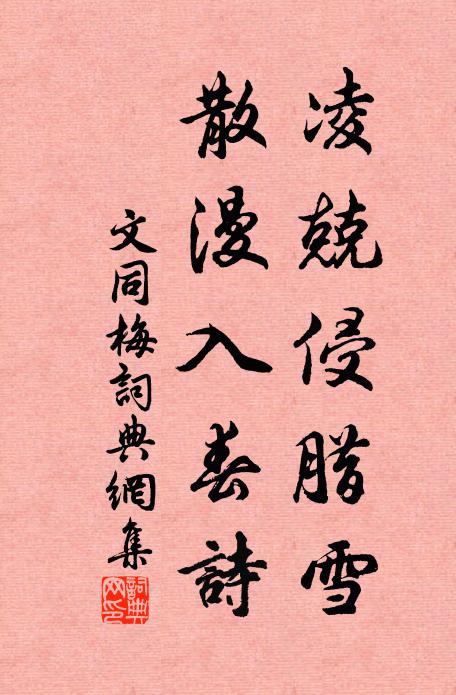 凌兢侵腊雪
散漫入春詩
文同梅詞典網集
詞典網印